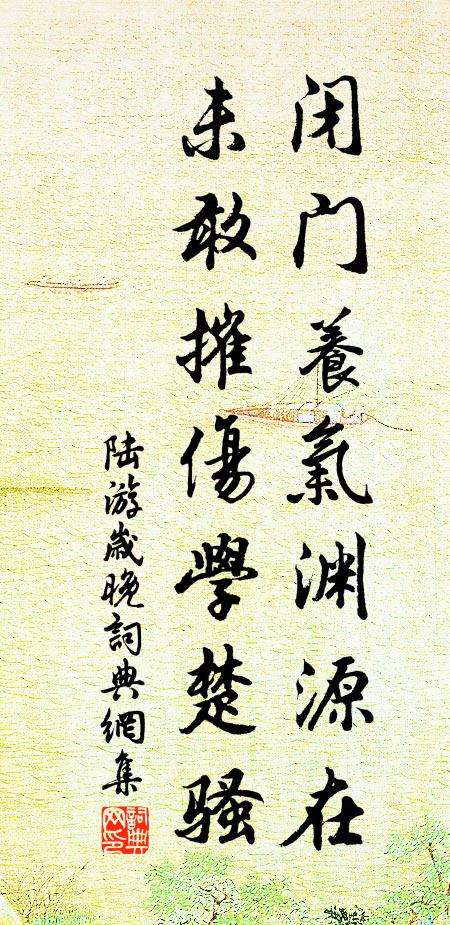 闭门養氣渊源在
未敢摧傷學楚骚
陆游歲晚詞典網集
詞典网印